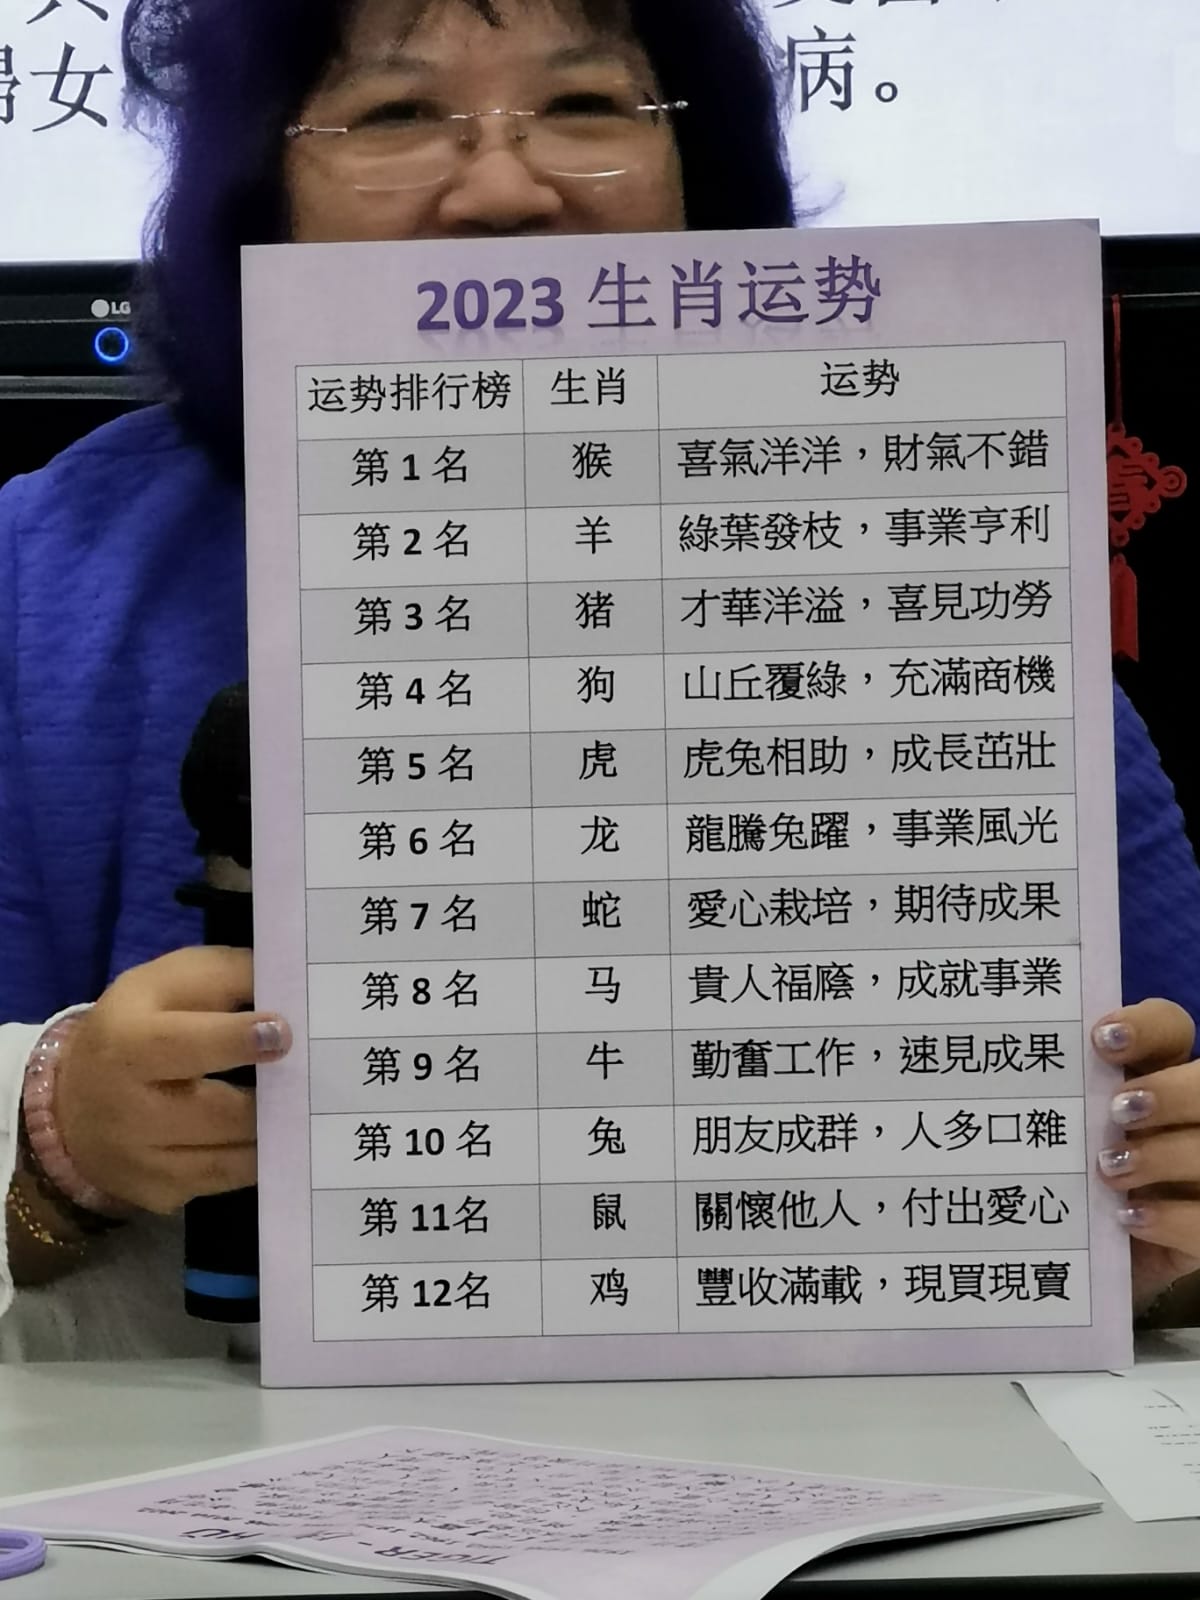 婦女
病。
LG
2023 生肖运势
运势排行榜 生肖 运势
第 1 名 猴 喜氣洋洋，財氣不錯
第 2 名 羊 綠葉發枝，事業亨利
第 3 名 猪 才華洋溢，喜見功勞
第 4 名 狗 山丘覆綠，充滿商機
第 5 名 虎 虎兔相助，成長茁壯
第 6 名 龙 龍騰兔躍，事業風光
第 7 名 蛇 愛心栽培，期待成果
第 8 名 马 貴人福廕，成就事業
第 9 名 牛 勤奮工作，速見成果
第 10 名 兔 朋友成群，人多口雜
第 11名 鼠 關懷他人，付出愛心
第 12名 鸡 豐收滿載，現買現賣
TIGER - 虎 HŬ